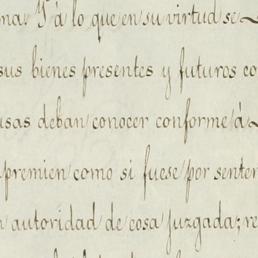 ma. Y á lo que en su virtud se
sus bienes presentes y futuros co
usas deban conocer conforme á
premien como si fuese por senten
autoridad de cosa juzgada; re